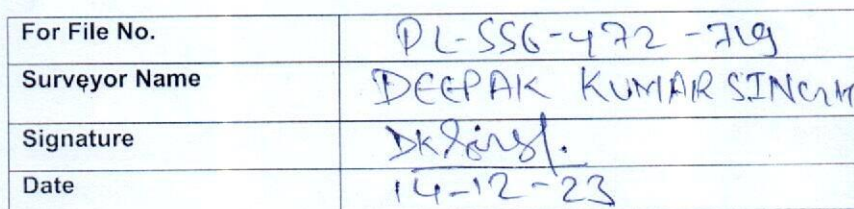 For File No. PL-SSG-472-719
Surveyor Name DEEPAK KUMAR SINGH
Signature DKSingh.
Date 14-12-23